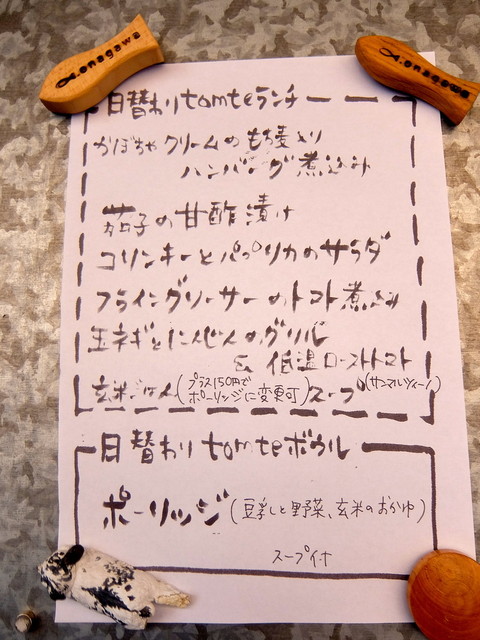 onagawa
onagawa
日替わりtomteランチ
かぼちゃクリームのもち麦入り
ハンバーグ煮込み
茄子の甘酢漬け
コリンキーとパプリカのサラダ
フライングソーサーのトマト煮込み
玉ネギとにんじんのグリル
& 低温ローストトマト
玄米ごはん(プラス150円で
ポーリッジに変更可)スープ(サンマルツァーノ)
日替わりtomteボウル
ポーリッジ(豆乳と野菜、玄米のおかゆ)
スープ付